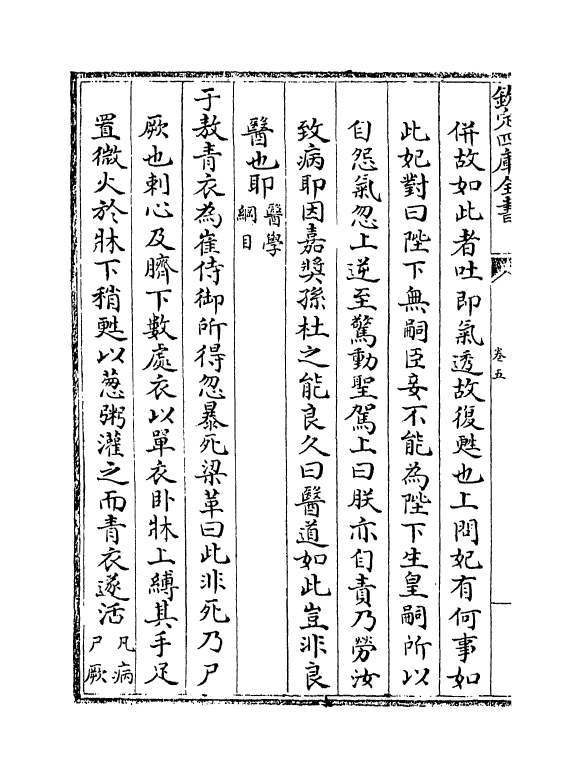 欽定四庫全書
卷五
併故如此者吐即氣透故復甦也上問妃有何事如
此妃對曰陛下無嗣臣妾不能為陛下生皇嗣所以
自怨氣忽上逆至驚動聖駕上曰朕亦自責乃勞汝
致病耶因嘉奬孫杜之能良久曰醫道如此豈非良
醫也耶醫學
綱目
于敖青衣為崔侍御所得忽暴死梁革曰此非死乃尸
厥也刺心及臍下數處衣以單衣卧牀上縛其手足
置微火於牀下稍甦以葱粥灌之而青衣遂活凡病
尸厥